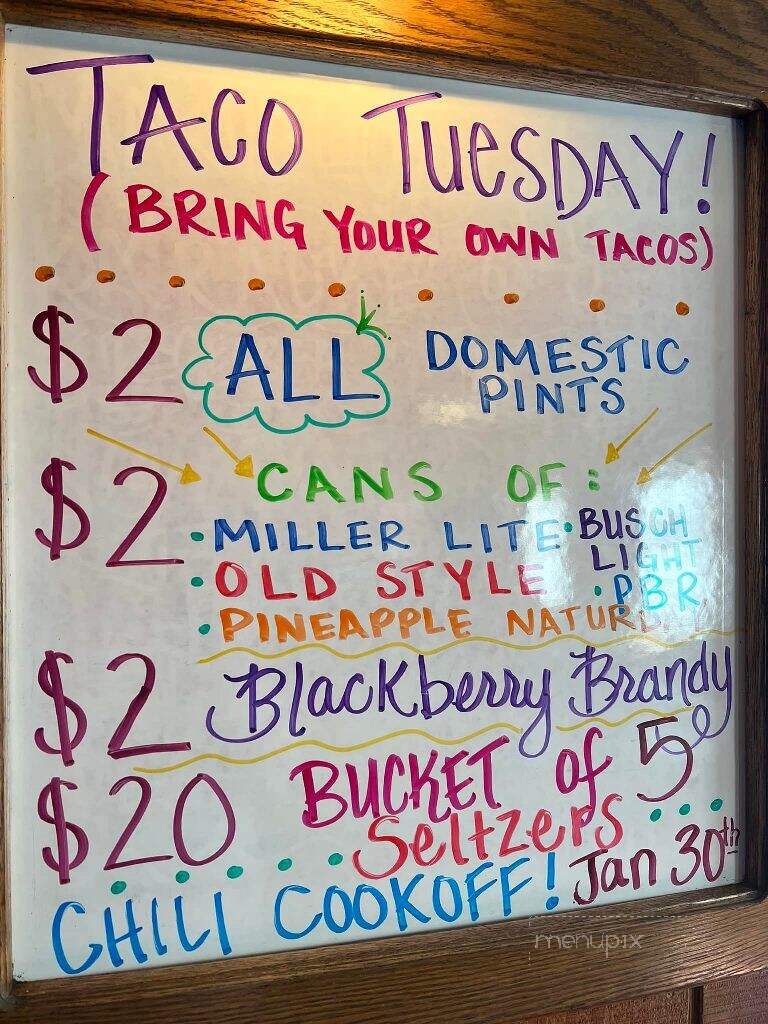 TACO TUESDAY!
(BRING YOUR OWN TACOS)
$2 ALL DOMESTIC PINTS
$2 CANS OF:
• MILLER LITE • BUSCH LIGHT
• OLD STYLE • PBR
• PINEAPPLE
$2 Blackberry Brandy
$20 BUCKET of 5
Seltzers...
CHILI COOKOFF! Jan 30th
menupix